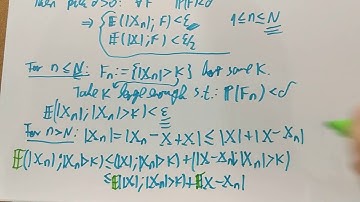 Then pick d>0: ∀F P(F)<d
⇒ { E(|Xn|;F)<ε 1≤n≤N
E(|X|;F)<ε/2
For n≤N: Fn:={|Xn|>K} for some K.
Take K large enough s.t.: P(Fn)<d
E(|Xn|;|Xn|>K)<ε
For n>N: |Xn|=|Xn-X+X|≤|X|+|X-Xn|
E(|Xn|;|Xn|>K)≤(|X|;|Xn|>K)+(|X-Xn|;|Xn|>K)
≤E|X|;|Xn|>K)+E|X-Xn|